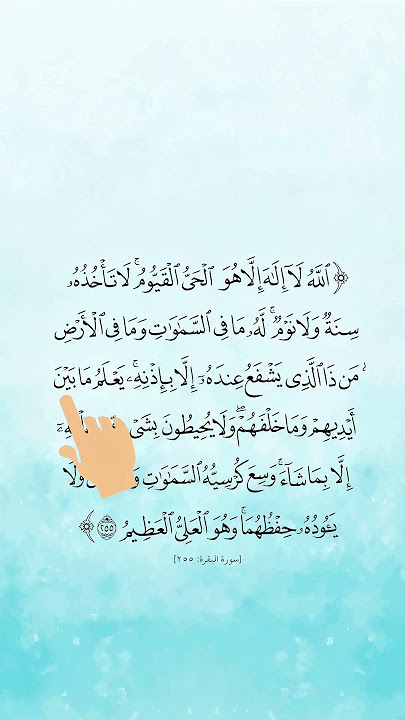 ﴿ ٱللَّهُ لَآ إِلَٰهَ إِلَّا هُوَ ٱلْحَىُّ ٱلْقَيُّومُ ۚ لَا تَأْخُذُهُۥ
سِنَةٌ وَلَا نَوْمٌ ۚ لَّهُۥ مَا فِى ٱلسَّمَٰوَٰتِ وَمَا فِى ٱلْأَرْضِ
ۗ مَن ذَا ٱلَّذِى يَشْفَعُ عِندَهُۥٓ إِلَّا بِإِذْنِهِۦ ۚ يَعْلَمُ مَا بَيْنَ
أَيْدِيهِمْ وَمَا خَلْفَهُمْ ۖ وَلَا يُحِيطُونَ
إِلَّا بِمَا شَآءَ ۚ وَسِعَ كُرْسِيُّهُ ٱلسَّمَٰوَٰتِ وَلَا
يَـُٔودُهُۥ حِفْظُهُمَا ۚ وَهُوَ ٱلْعَلِىُّ ٱلْعَظِيمُ ٢٥٥ ﴾
[سورة البقرة: ٢٥٥]